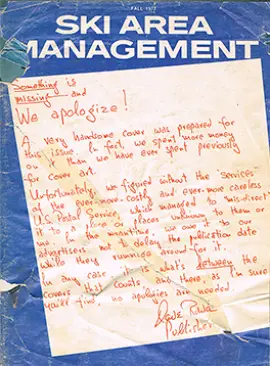 FALL 1977
SKI AREA
MANAGEMENT
Something is
missing — and
We apologize!
A very handsome cover was prepared for
this issue. In fact, we spent more money
on it than we have ever spent previously
for cover art.
Unfortunately, we figured without the services
of the ever-more-costly and ever-more careless
U.S. Postal Service, which managed to mis-direct
it to a place or places unknown to them or
me. In the meantime, we owe it to our
advertisers not to delay the publication date
while they rummage around for it.
In any case, it is what's between the
covers that counts and there, as I'm sure
you'll find, no apologies are needed.
Publisher